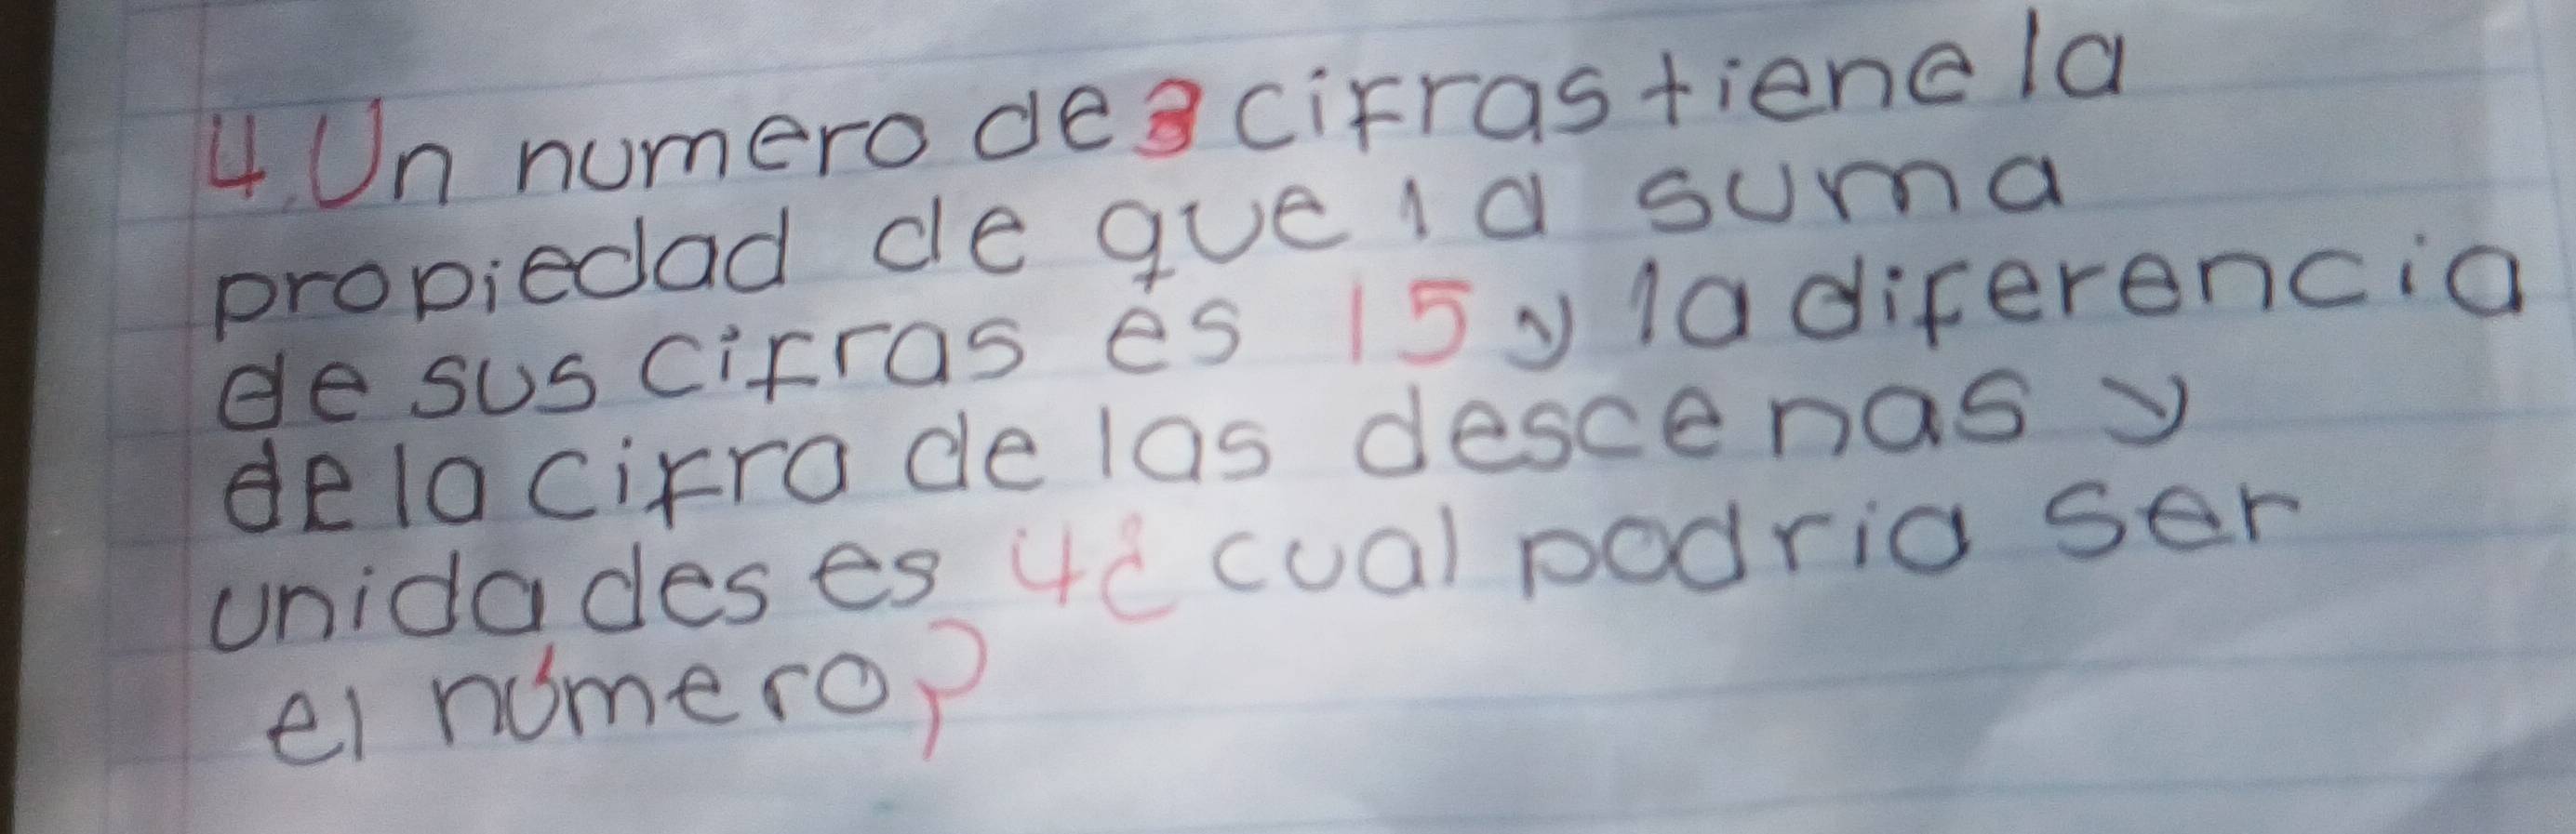 4. Un numero de 3 cifras tiene la
propiedad de que la suma
de sus cifras es 15 y la diferencia
de la cifra de las descenas y
unidades es 4 ¿ cual podria ser
el número?